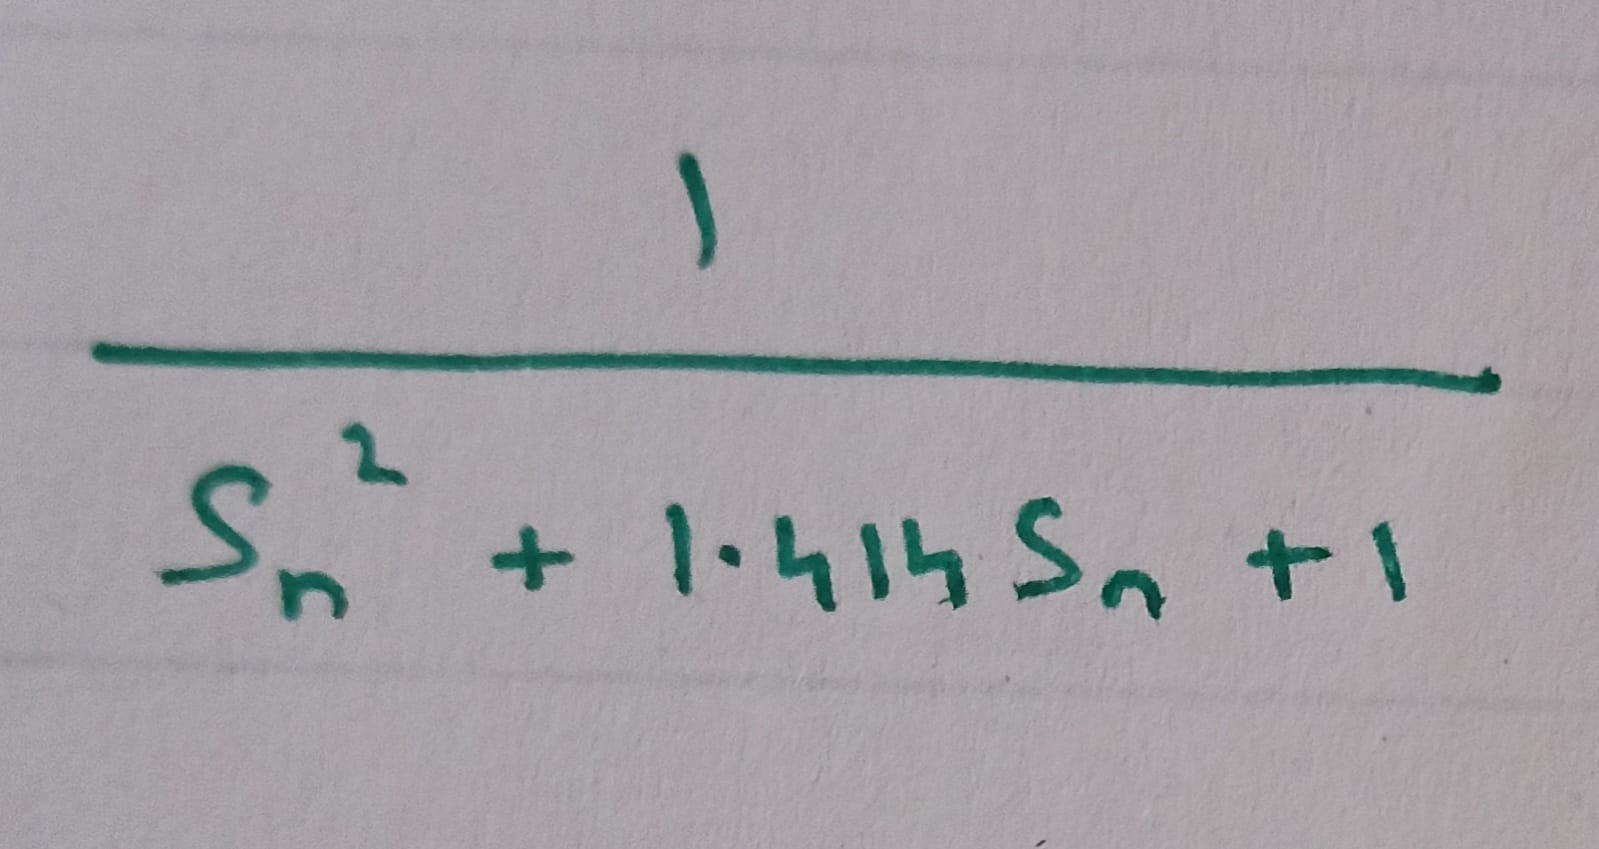 1
Sn² + 1.414 Sn + 1